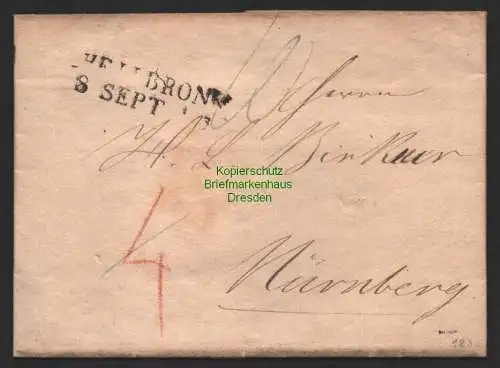 HEILBRONN
8 SEPT
Herrn
Kopierschutz
Briefmarkenhaus
Dresden
4
Nürnberg